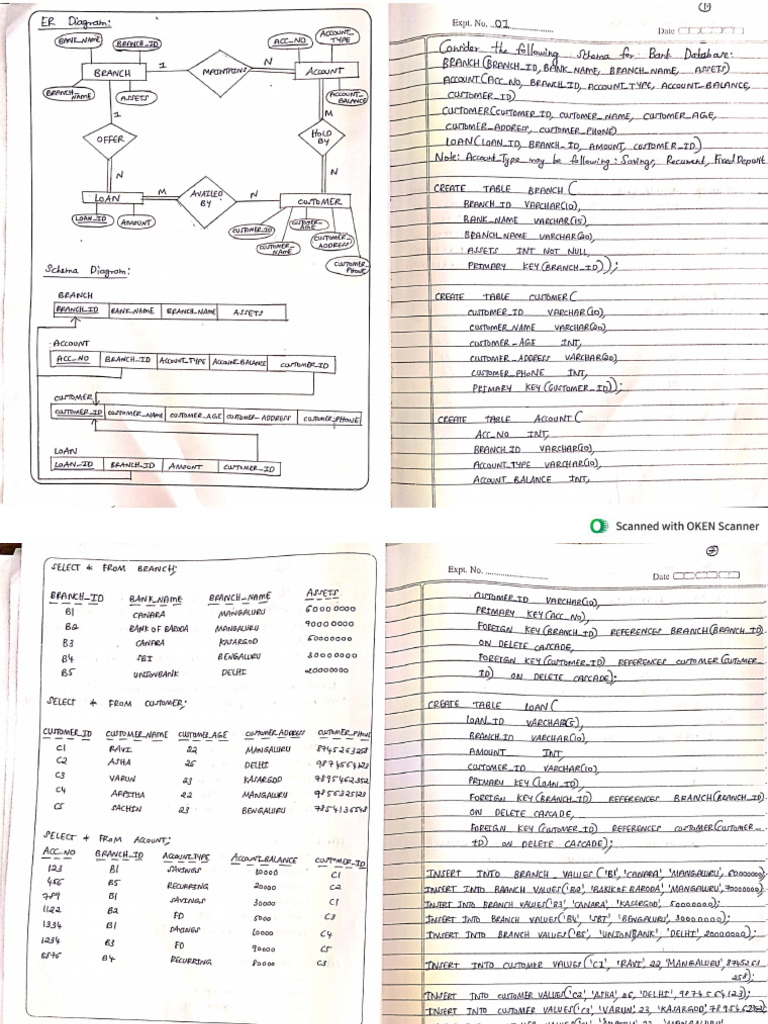 ER Diagram:
BANK_NAME
BRANCH_ID
BRANCH
BRANCH_NAME
ASSETS
1
MAINTAINS
N
ACC_NO
ACCOUNT_TYPE
ACCOUNT
ACCOUNT_BALANCE
1
OFFER
N
M
HOLD BY
N
LOAN
LOAN_ID
AMOUNT
M
AVAILED BY
N
CUSTOMER
CUSTOMER_ID
CUSTOMER_NAME
CUSTOMER_AGE
CUSTOMER_ADDRESS
CUSTOMER_PHONE
Schema Diagram:
BRANCH
BRANCH_ID BANK_NAME BRANCH_NAME ASSETS
ACCOUNT
ACC_NO BRANCH_ID ACCOUNT_TYPE ACCOUNT_BALANCE CUSTOMER_ID
CUSTOMER
CUSTOMER_ID CUSTOMER_NAME CUSTOMER_AGE CUSTOMER_ADDRESS CUSTOMER_PHONE
LOAN
LOAN_ID BRANCH_ID AMOUNT CUSTOMER_ID
Expt. No. 01
Date
Consider the following schema for Bank Database:
BRANCH(BRANCH_ID, BANK_NAME, BRANCH_NAME, ASSETS)
ACCOUNT(ACC_NO, BRANCH_ID, ACCOUNT_TYPE, ACCOUNT_BALANCE,
CUSTOMER_ID)
CUSTOMER(CUSTOMER_ID, CUSTOMER_NAME, CUSTOMER_AGE,
CUSTOMER_ADDRESS, CUSTOMER_PHONE)
LOAN(LOAN_ID, BRANCH_ID, AMOUNT, CUSTOMER_ID)
Note: Account Type may be following: Savings, Recurrent, Fixed Deposit
CREATE TABLE BRANCH (
BRANCH_ID VARCHAR(10),
BANK_NAME VARCHAR(15),
BRANCH_NAME VARCHAR(20),
ASSETS INT NOT NULL,
PRIMARY KEY(BRANCH_ID));
CREATE TABLE CUSTOMER(
CUSTOMER_ID VARCHAR(10),
CUSTOMER_NAME VARCHAR(20),
CUSTOMER_AGE INT,
CUSTOMER_ADDRESS VARCHAR(20),
CUSTOMER_PHONE INT,
PRIMARY KEY(CUSTOMER_ID));
CREATE TABLE ACCOUNT(
ACC_NO INT,
BRANCH_ID VARCHAR(10),
ACCOUNT_TYPE VARCHAR(10),
ACCOUNT_BALANCE INT,
Scanned with OKEN Scanner
SELECT * FROM BRANCH;
BRANCH_ID BANK_NAME BRANCH_NAME ASSETS
B1 CANARA MANGALURU
B2 BANK OF BARODA MANGALURU
B3 CANARA KASARGOD
B4 SBI BENGALURU
B5 UNIONBANK DELHI 20000000
SELECT * FROM CUSTOMER;
CUSTOMER_ID CUSTOMER_NAME CUSTOMER_AGE CUSTOMER_ADDRESS CUSTOMER_PHONE
C1 RAVI 22 MANGALURU
C2 ASHA DELHI
C3 VARUN 23 KASARGOD
C4 ARPITHA 22 MANGALURU
C5 SACHIN 23 BENGALURU
SELECT * FROM ACCOUNT;
ACC_NO BRANCH_ID ACCOUNTTYPE ACCOUNTBALANCE CUSTOMER_ID
123 B1 SAVINGS 10000 C1
456 B5 RECURRING 20000 C2
789 B1 SAVINGS 30000 C1
1122 B2 FD 5000 C3
1334 B1 SAVINGS 10000 C4
1234 B3 FD 90000 C5
B4 RECURRING C3
Expt. No.
Date
CUSTOMER_ID VARCHAR(10),
PRIMARY KEY(ACC_NO),
FOREIGN KEY(BRANCH_ID) REFERENCES BRANCH(BRANCH_ID)
ON DELETE CASCADE,
FOREIGN KEY(CUSTOMER_ID) REFERENCES CUSTOMER(CUSTOMER_
ID) ON DELETE CASCADE);
CREATE TABLE LOAN(
LOAN_ID VARCHAR(5),
BRANCH_ID VARCHAR(10),
AMOUNT INT,
CUSTOMER_ID VARCHAR(10),
PRIMARY KEY(LOAN_ID),
FOREIGN KEY(BRANCH_ID) REFERENCES BRANCH(BRANCH_ID)
ON DELETE CASCADE,
FOREIGN KEY(CUSTOMER_ID) REFERENCES CUSTOMER(CUSTOMER_
ID) ON DELETE CASCADE);
INSERT INTO BRANCH VALUES ('B1', 'CANARA', 'MANGALURU',
INSERT INTO BRANCH VALUES('B2', 'BANKOFBARODA', 'MANGALURU',
INSERT INTO BRANCH VALUES('B3', 'CANARA', 'KASARGOD',
INSERT INTO BRANCH VALUES('B4', 'SBI', 'BENGALURU',
INSERT INTO BRANCH VALUES('B5', 'UNIONBANK', 'DELHI', 20000000);
INSERT INTO CUSTOMER VALUES ('C1', 'RAVI', 22, 'MANGALURU',
INSERT INTO CUSTOMER VALUES('C2', 'ASHA', 'DELHI',
INSERT INTO CUSTOMER VALUES('C3', 'VARUN', 23, 'KASARGOD',